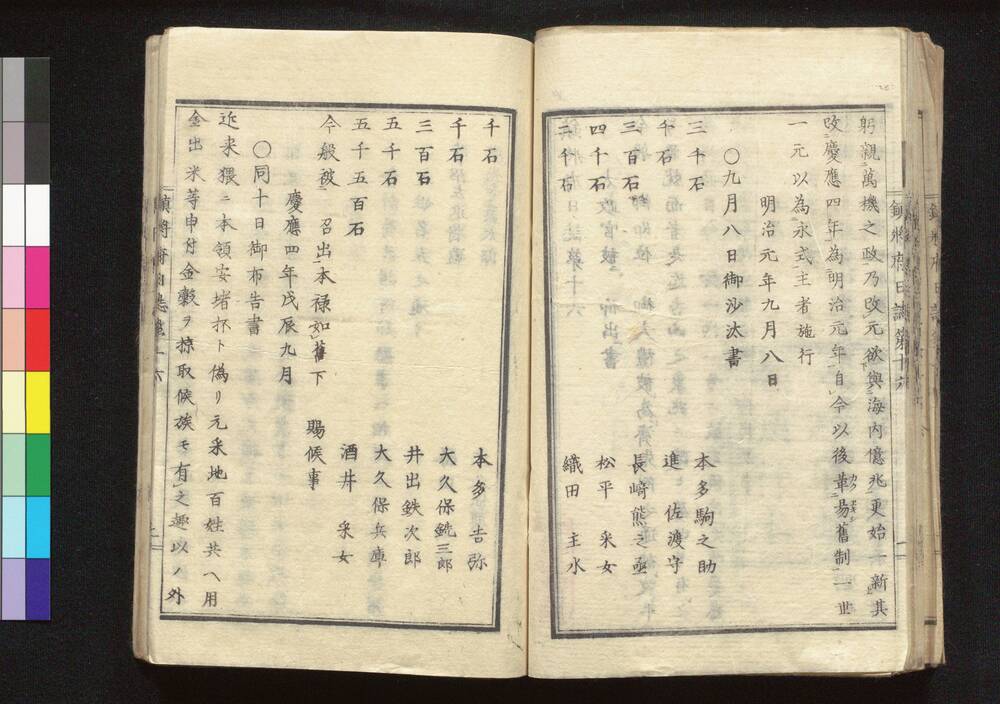 躬親萬機之政乃改元欲與海内億兆更始一新其
改慶應四年為明治元年自今以後革易舊制一世
一元以為永式主者施行
明治元年九月八日
○九月八日御沙汰書
三千石 本多駒之助
千石 進佐渡守
三百石 長﨑熊之亟
四千石 松平采女
二千石 織田主水
鎮将府日誌第十六
千石 本多吉弥
千石 大久保銑三郎
三百石 井出鉄次郎
五千石 大久保兵庫
五千五百石 酒井采女
今般被 召出本禄如舊下 賜候事
慶應四年戊辰九月
○同十日御布告書
近来猥ニ本領安堵抔ト偽リ元采地百姓共ヘ用
金出米等申付金穀ヲ掠取候族モ有之趣以ノ外
鎮将府日誌第十六